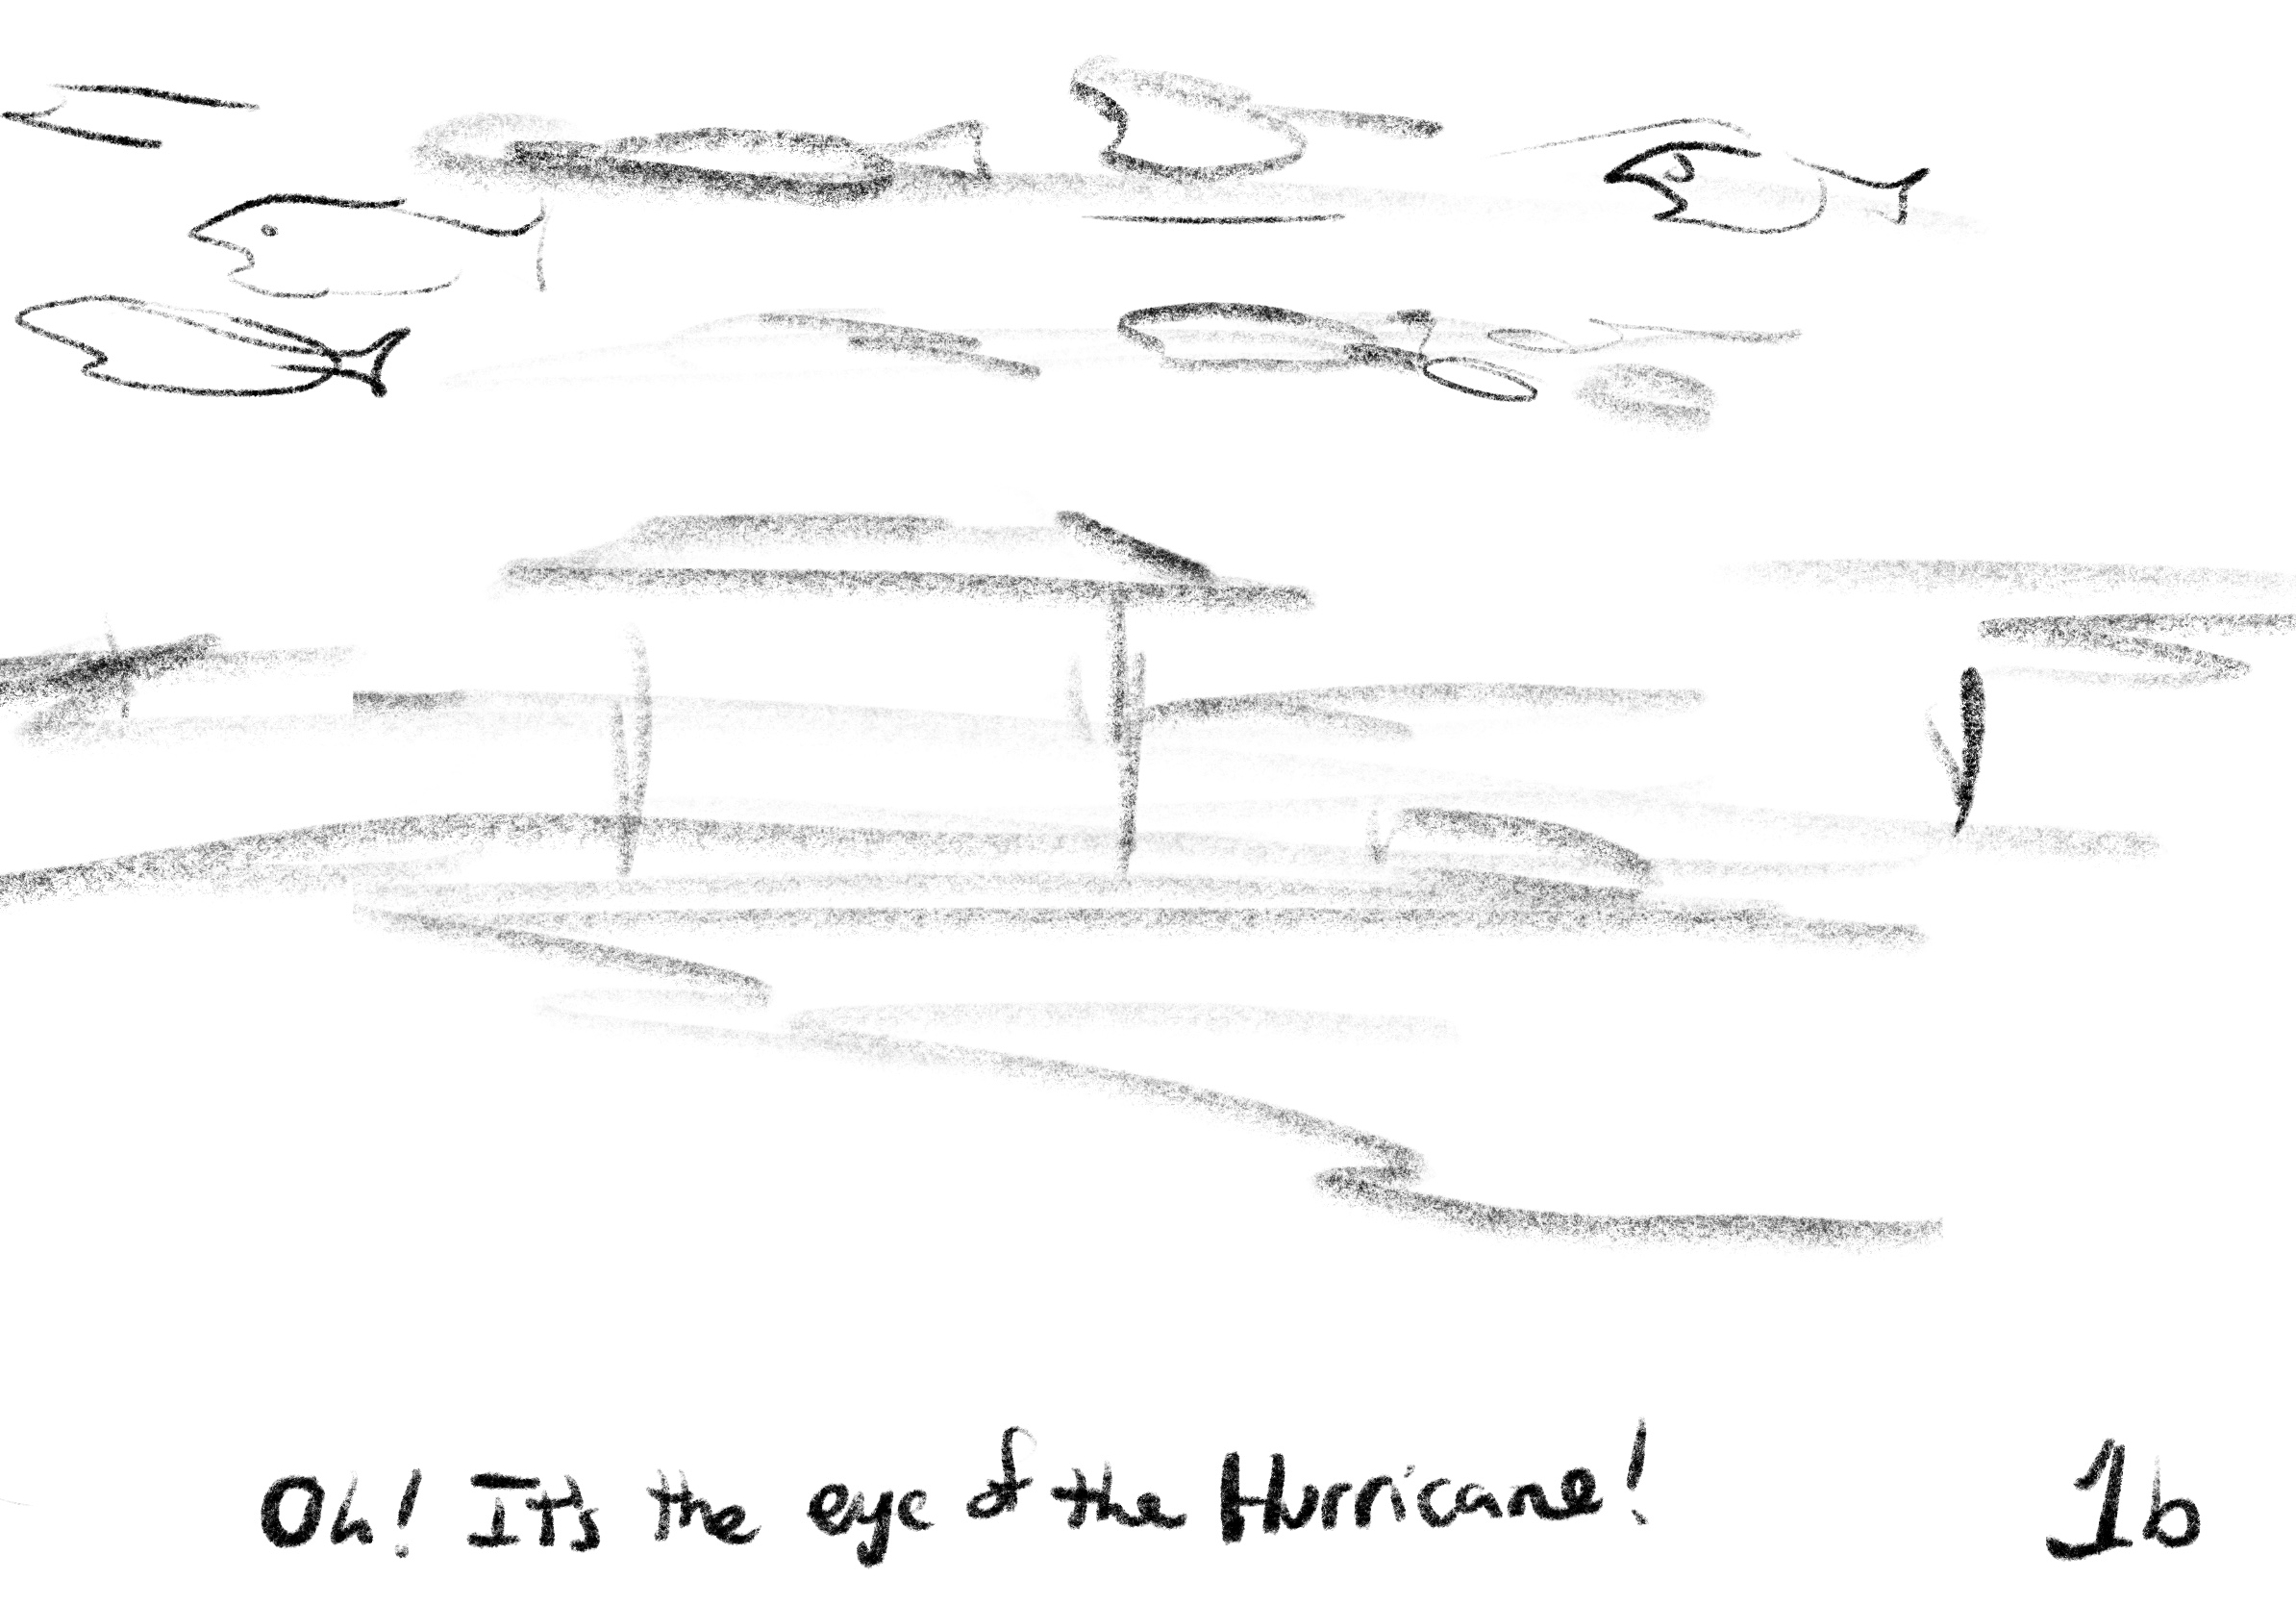 Oh! It's the eye of the Hurricane! 1b